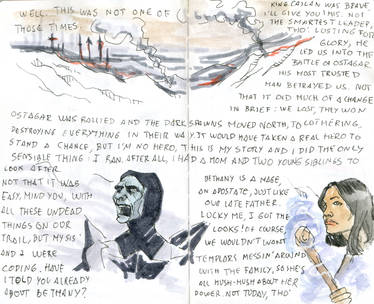 WELL. THIS WAS NOT ONE OF
THOSE TIMES.
KING CAILAN WAS BRAVE,
I'LL GIVE YOU THIS. NOT
THE SMARTEST LEADER,
THO'. LUSTING FOR
GLORY, HE
LED US INTO THE
BATTLE OF OSTAGAR.
HIS MOST TRUSTED
MAN BETRAYED US. NOT
THAT IT DID MUCH OF A CHANGE
IN BRIEF: WE LOST, THEY WON
OSTAGAR WAS FALLIED AND THE DARKSPAWNS MOVED NORTH, TO LOTHERING,
DESTROYING EVERYTHING IN THEIR WAY. IT WOULD HAVE TAKEN A REAL HERO TO
STAND A CHANCE, BUT I'M NO HERO, THIS IS MY STORY AND I DID THE ONLY
SENSIBLE THING: I RAN. AFTER ALL, I HAD A MOM AND TWO YOUNG SIBLINGS TO
LOOK AFTER.
NOT THAT IT WAS
EASY, MIND YOU, WITH
ALL THESE UNDEAD
THINGS ON OUR
TRAIL, BUT MY SIS'
AND I WERE
CODING. HAVE
I TOLD YOU ALREADY
ABOUT BETHANY?
BETHANY IS A MAGE,
AN APOSTATE, JUST LIKE
OUR LATE FATHER.
LUCKY ME, I GOT THE
LOOKS! OF COURSE,
WE WOULDN'T WANT
TEMPLARS MESSIN' AROUND
WITH THE FAMILY, SO SHE'S
ALL HUSH-HUSH ABOUT HER
POWER. NOT TODAY, THO'